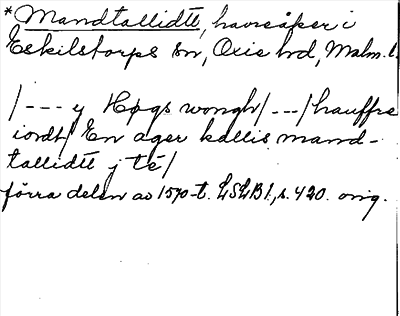 *Mandtallidtt, havreåker i
Eskilstorps sn, Oxie hd, Malm. l.
/--- y Høgs wongh/---/hauffre
iordt/ En ager kallis mand-
tallidtt j té/
förra delen av 1570-t. LSLB1, s. 420. orig.